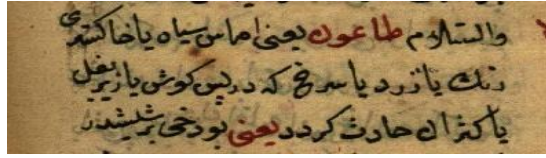 والسلام طاعون یعنی اماس سیاه یا خاکستری
رنک یا زرد یا سرخ که در پس کوش یا زیر بغل
یا کنران حادث کردد یعنی بود